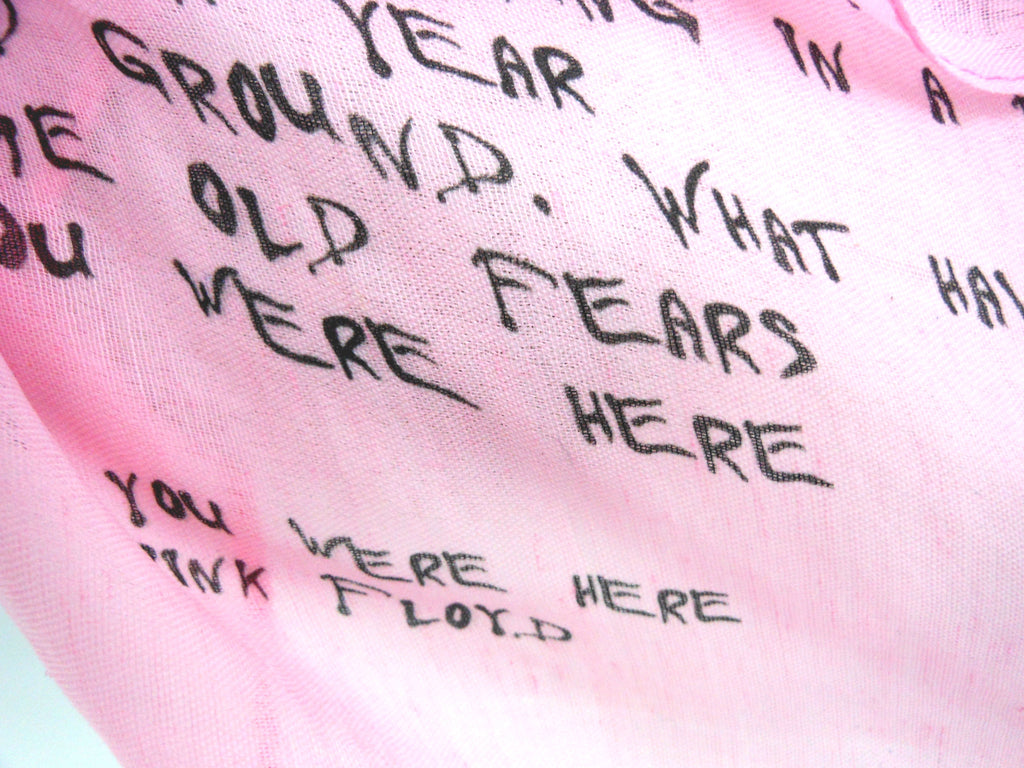 YEAR IN A
GROUND. WHAT HAV
OLD FEARS
OU WERE HERE
YOU WERE HERE
INK FLOYD